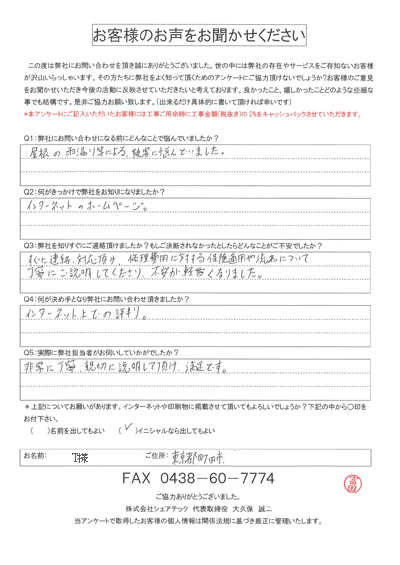 お客様のお声をお聞かせください
この度は弊社にお問い合わせを頂き誠にありがとうございました。世の中には弊社の存在やサービスをご存知ないお客様
が沢山いらっしゃいます。その方たちに弊社をよく知って頂くためのアンケートにご協力頂けないでしょうか?お客様のご意見
をお聞かせいただき今後の活動に反映させていただきたいと考えております。良かったこと、嬉しかったことどのような些細な
事でも結構です。是非ご協力お願い致します。(出来るだけ具体的に書いて頂ければ幸いです)
*本アンケートにご記入いただいたお客様には工事ご用命時に工事金額(税抜き)の 2%をキャッシュバックさせていただきます。
Q1:弊社にお問い合わせになる前にどんなことで悩んでいましたか?
屋根の雨漏り等による、被害に悩んでいました。
Q2:何がきっかけで弊社をお知りになりましたか?
インターネットのホームページ。
Q3:弊社を知りすぐにご連絡頂けましたか?もしご決断されなかったとしたらどんなことがご不安でしたか?
すぐに連絡、対応頂け、修理費用に対する保険適用や流れについて
丁寧にご説明してくださり、不安が軽減くなりました。
Q4:何が決め手となり弊社にお問い合わせ頂きましたか?
インターネット上での評判。
Q5:実際に弊社担当者がお伺いしていかがでしたか?
非常に丁寧、親切に説明して頂け、満足です。
*上記についてお願いがあります。インターネットや印刷物に掲載させて頂いてもよろしいでしょうか?下記の中から〇印を
お付下さい。
( )名前を出してもよい (✓)イニシャルなら出してもよい
お名前: T様 ご住所: 東京都町田市
FAX 0438-60-7774
ご協力ありがとうございました。
株式会社シェアテック 代表取締役 大久保 誠二
当アンケートで取得したお客様の個人情報は関係法規に基づき厳正に管理いたします。